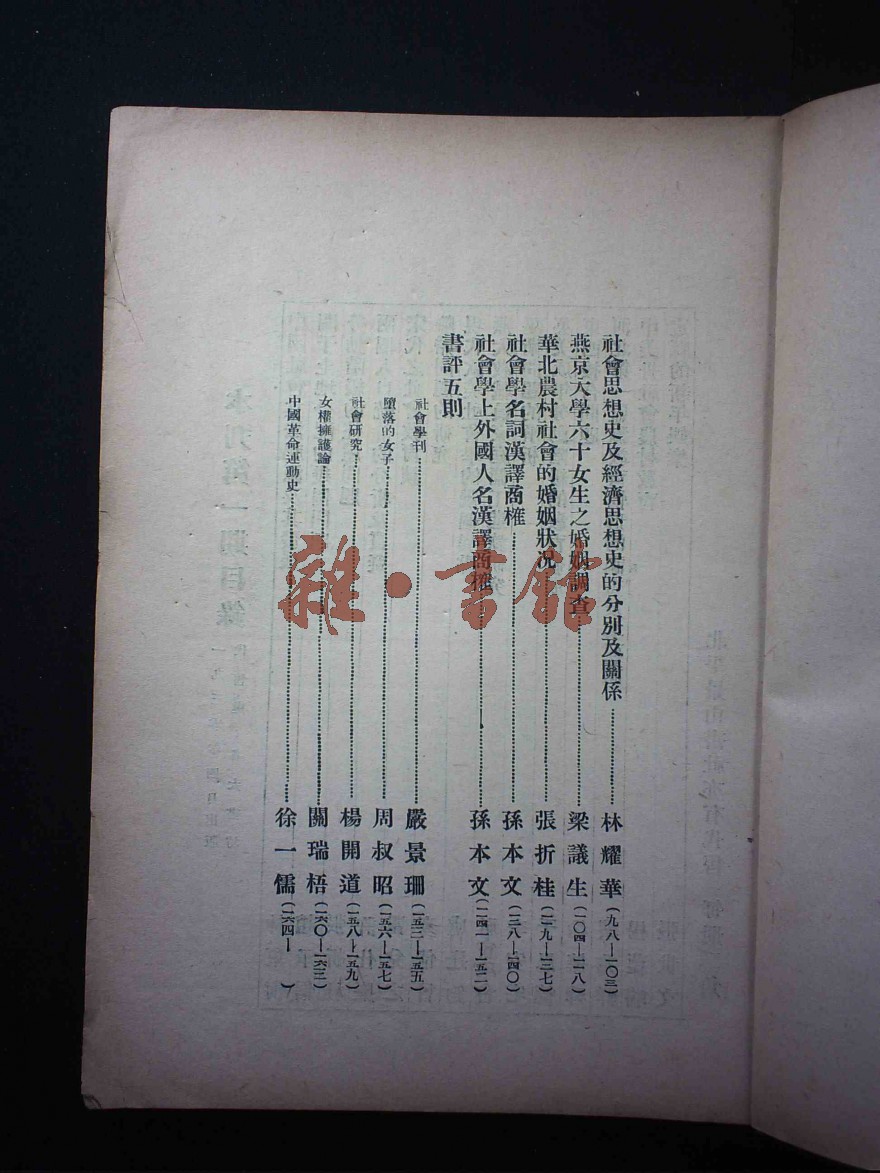 社會思想史及經濟思想史的分別及關係……林耀華(九八—一〇三)
燕京大學六十女生之婚姻調查……梁議生(一〇四—一一八)
華北農村社會的婚姻狀況……張折桂(一二九—一三七)
社會學名詞漢譯商榷……孫本文(一三八—一四〇)
社會學上外國人名漢譯商榷……孫本文(一四一—一五二)
書評五則
社會學刊……嚴景珊(一五三—一五五)
墮落的女子……周叔昭(一五六—一五七)
社會研究……楊開道(一五八—一五九)
女權擁護論……關瑞梧(一六〇—一六三)
中國革命運動史……徐一儒(一六四— )
雜·書館